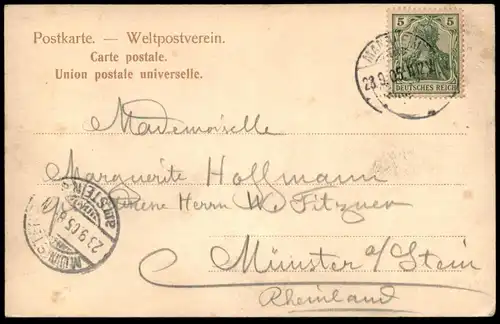 Postkarte. — Weltpostverein.
Carte postale.
Union postale universelle.
5 5
DEUTSCHES REICH
23.9.05
Mademoiselle
Marguerite Hoffmann
Herrn W. Fitzner
Münster a/Stein
Rheinland
MÜNSTER
a. STEIN
23.9.05